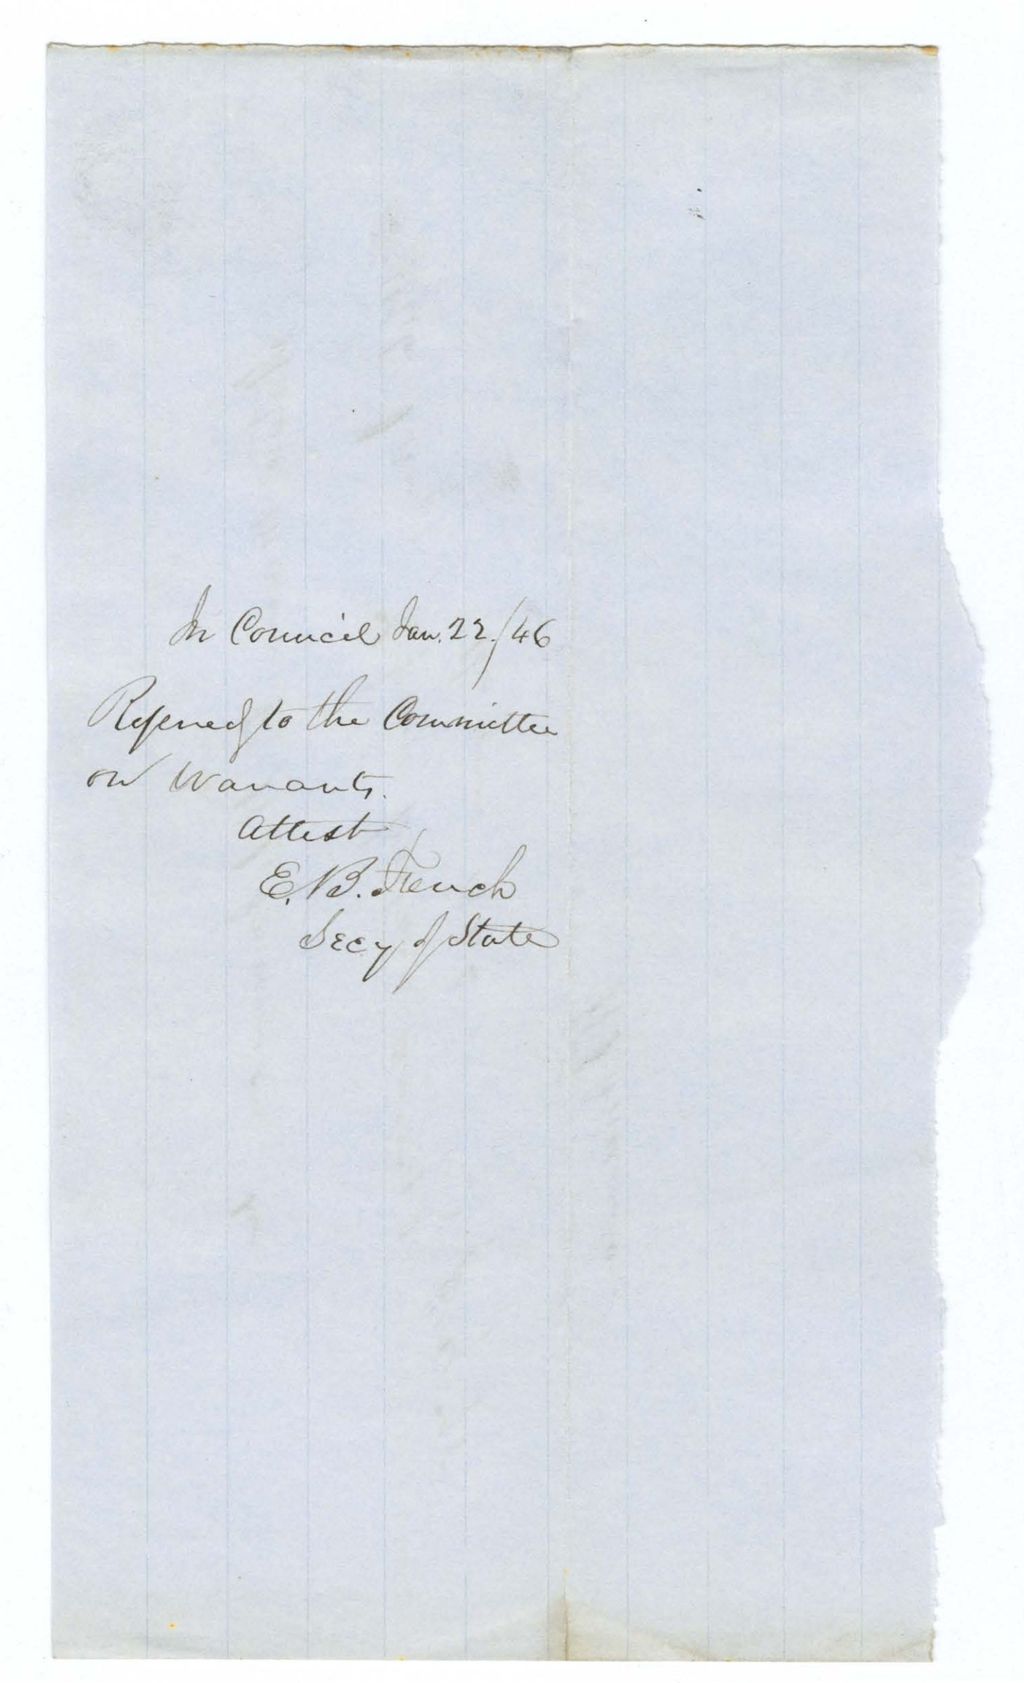 In Council Jan. 22./46
Referred to the Committee
on Warrants.
Attest
E. B. French
Secy of State